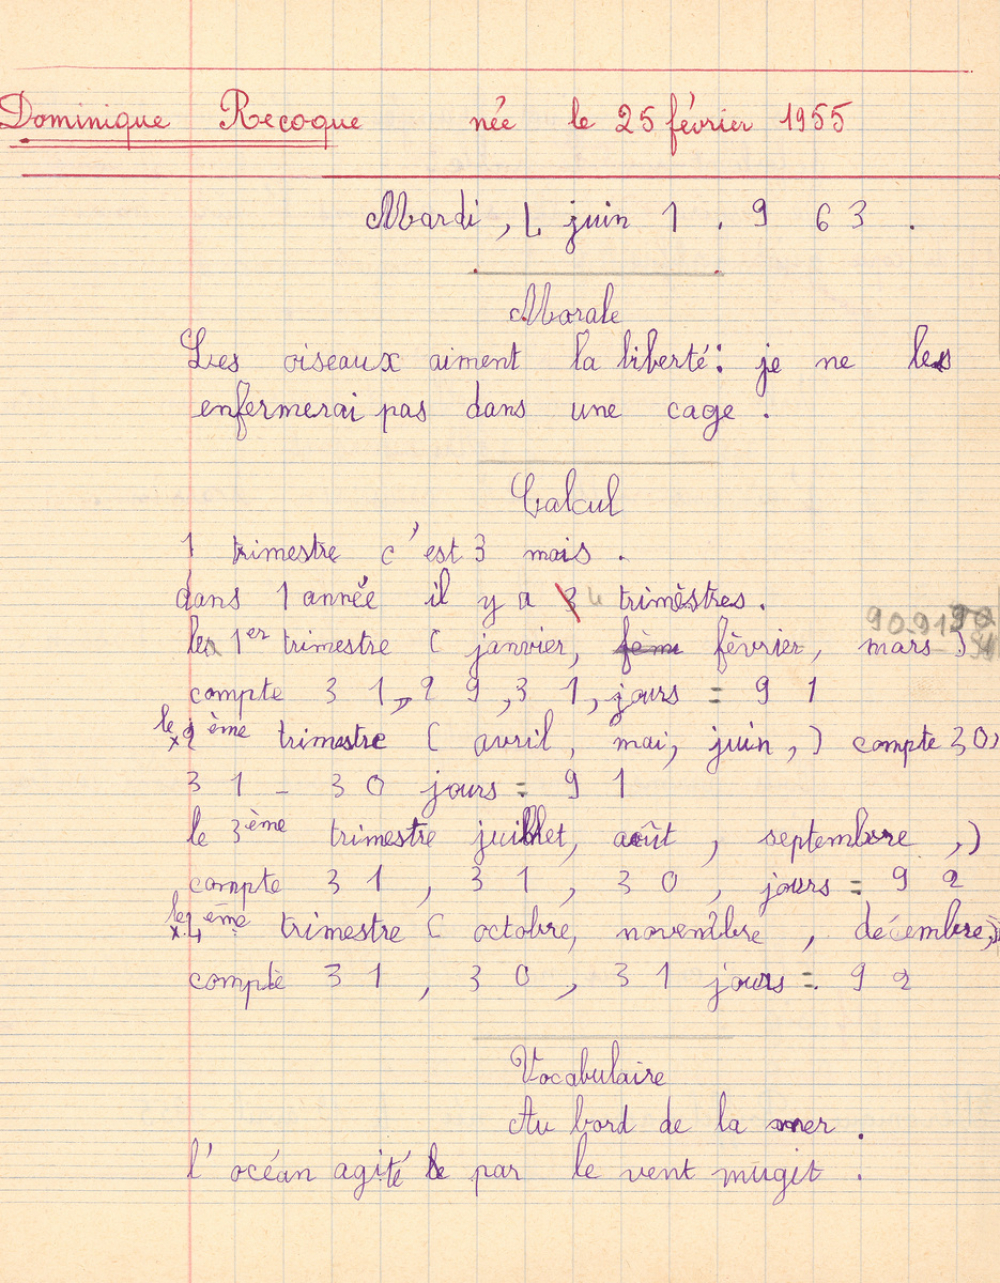 Dominique Recoque née le 25 février 1955
Mardi, 4 juin 1.963.
Morale
Les oiseaux aiment la liberté: je ne les
enfermerai pas dans une cage.
Calcul
1 trimestre c'est 3 mois.
dans 1 année il y a 3 4 trimèstres.
90-91
le 1er trimestre ( janvier, février, mars )
compte 31, 29, 31, jours = 91
le 2ème trimestre ( avril, mai, juin, ) compte 30,
31 - 30 jours = 91
le 3ème trimestre juillet, août, septembre, )
compte 31, 31, 30, jours = 92
le 4ème trimestre ( octobre, novembre, décembre, )
compte 31, 30, 31 jours = 92
Vocabulaire
Au bord de la mer.
l'océan agité par le vent mugit.